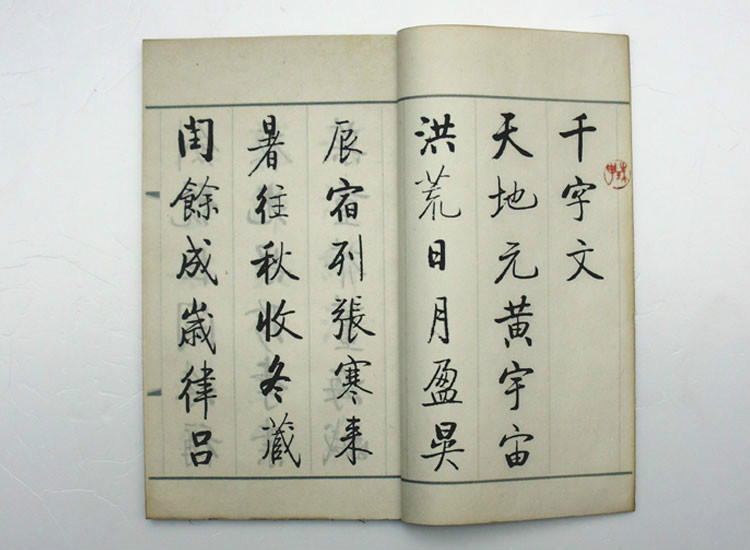 千字文
天地元黄宇宙
洪荒日月盈昃
辰宿列張寒来
暑往秋收冬藏
閏餘成歲律吕